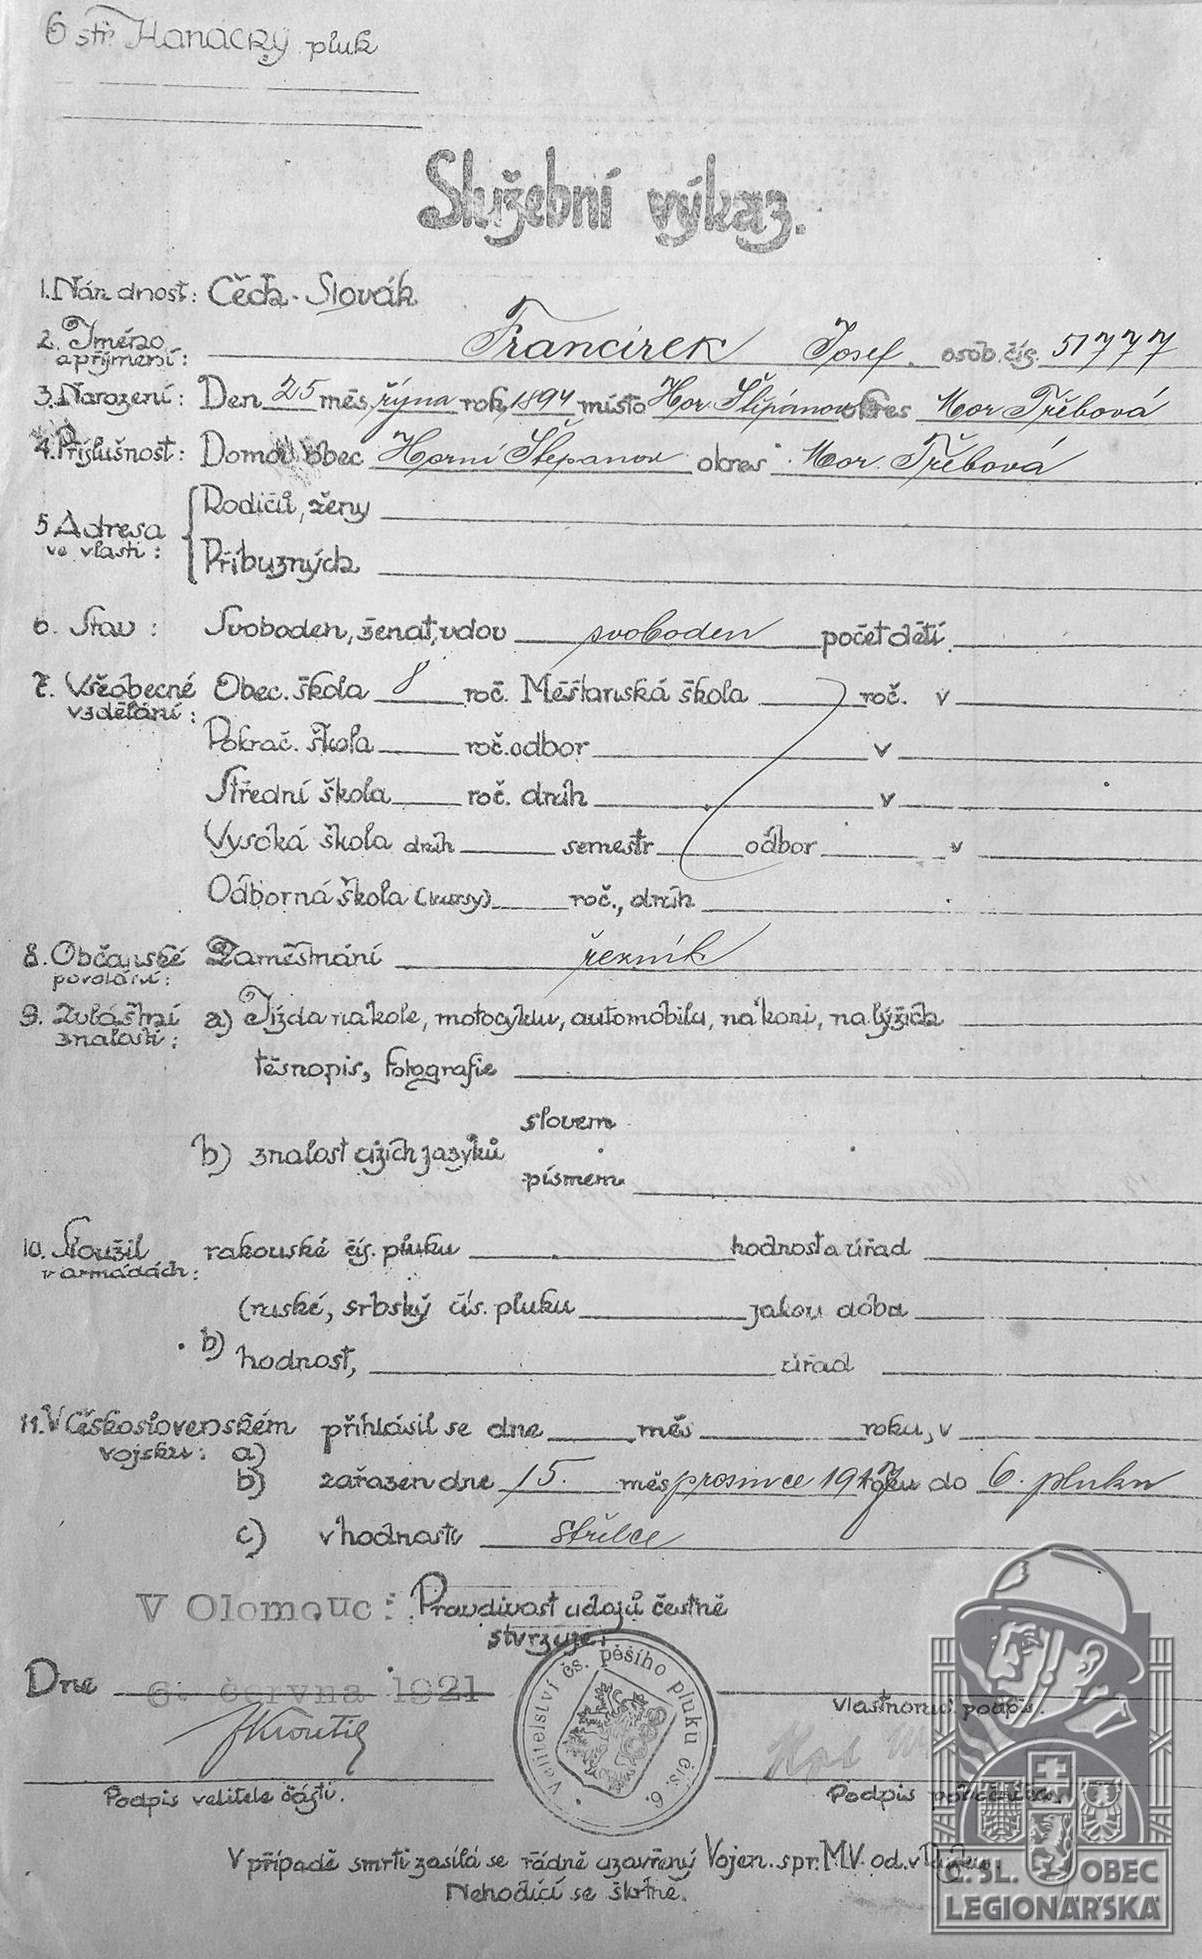 6 stř. Hanácký pluk
Služební výkaz.
1. Nár dnost: Čech - Slovák
2. Jméno a příjmení: Francírek Josef. osob. čís. 51777
3. Narození: Den 25 měs. října rok 1894 místo Hor. Štěpánov okres Mor Třebová
4. Příslušnost: Domov. obec Horní Štěpanov okres Mor. Třebová
5 Adresa ve vlasti: Rodičů, ženy
Příbuzných
6. Stav: Svoboden, ženat, vdov svoboden počet dětí
7. Všeobecné vzdělání: Obec. škola 8 roč. Měšťanská škola roč. v
Pokrač. škola roč. odbor v
Střední škola roč. druh v
Vysoká škola druh semestr odbor v
Odborná škola (kursy) roč., druh
8. Občanské povolání: Zaměstnání řezník
9. Zvláštní znalosti: a) Jízda na kole, motocyklu, automobilu, na koni, na lyžích
těsnopis, fotografie
slovem
b) znalost cizích jazyků
písmem
10. Sloužil v armádách: rakouské čís. pluku hodnost a úřad
(ruské, srbský čís. pluku jakou doba
b) hodnost, úřad
11. V Československém vojsku: a) přihlásil se dne měs roku, v
b) zařazen dne 15. měs prosince 1917 roku do 6. pluku
c) v hodnosti střelce
V Olomouc: Pravdivost udajů čestně
stvrzuje:
Dne 6. června 1921
JKroutil
Vlastnoruč. podpis.
Podpis velitele části.
Podpis
Velitelství čs. pěšího pluku čís. 6.
V případě smrti zasílá se řádně uzavřený Vojen. spr. M.V. od. v
Nehodící se škrtne.
Č. SL. OBEC
LEGIONÁŘSKÁ